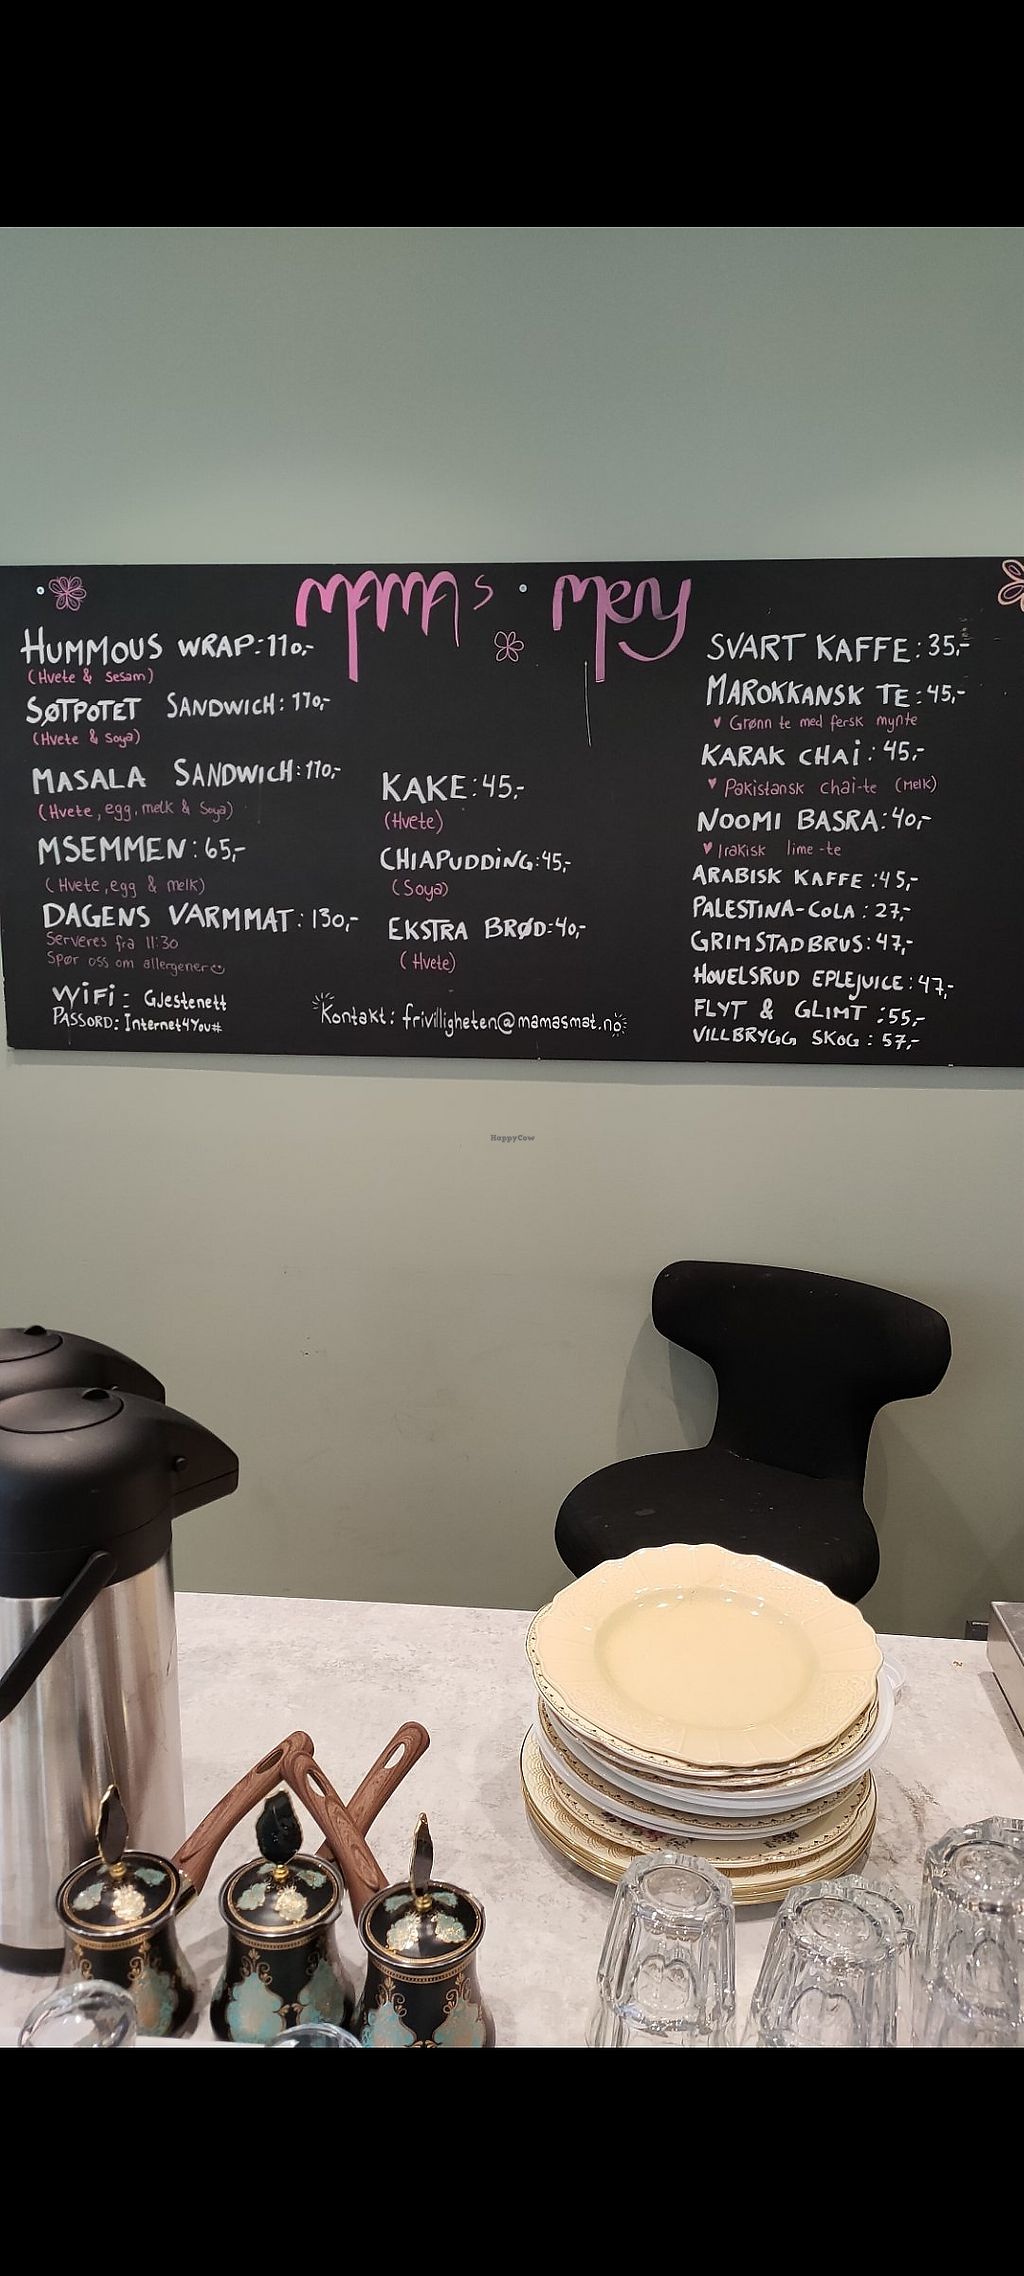 MAMAs Meny
HUMMOUS WRAP: 110,-
(Hvete & Sesam)
SØTPOTET SANDWICH: 110,-
(Hvete & Soya)
MASALA SANDWICH: 110,-
(Hvete, egg, melk & Soya)
MSEMMEN: 65,-
(Hvete, egg & melk)
DAGENS VARMMAT: 130,-
Serveres fra 11:30
Spør oss om allergener
WiFi: Gjestenett
PASSORD: Internet4You#
KAKE: 45,-
(Hvete)
CHIAPUDDING: 45,-
(Soya)
EKSTRA BRØD: 40,-
(Hvete)
Kontakt: frivilligheten@mamasmat.no
SVART KAFFE: 35,-
MAROKKANSK TE: 45,-
♥ Grønn te med fersk mynte
KARAK CHAI: 45,-
♥ Pakistansk chai-te (Melk)
NOOMI BASRA: 40,-
♥ Irakisk lime-te
ARABISK KAFFE: 45,-
PALESTINA-COLA: 27,-
GRIMSTADBRUS: 47,-
HOVELSRUD EPLEJUICE: 47,-
FLYT & GLIMT: 55,-
VILLBRYGG SKOG: 57,-
HappyCow